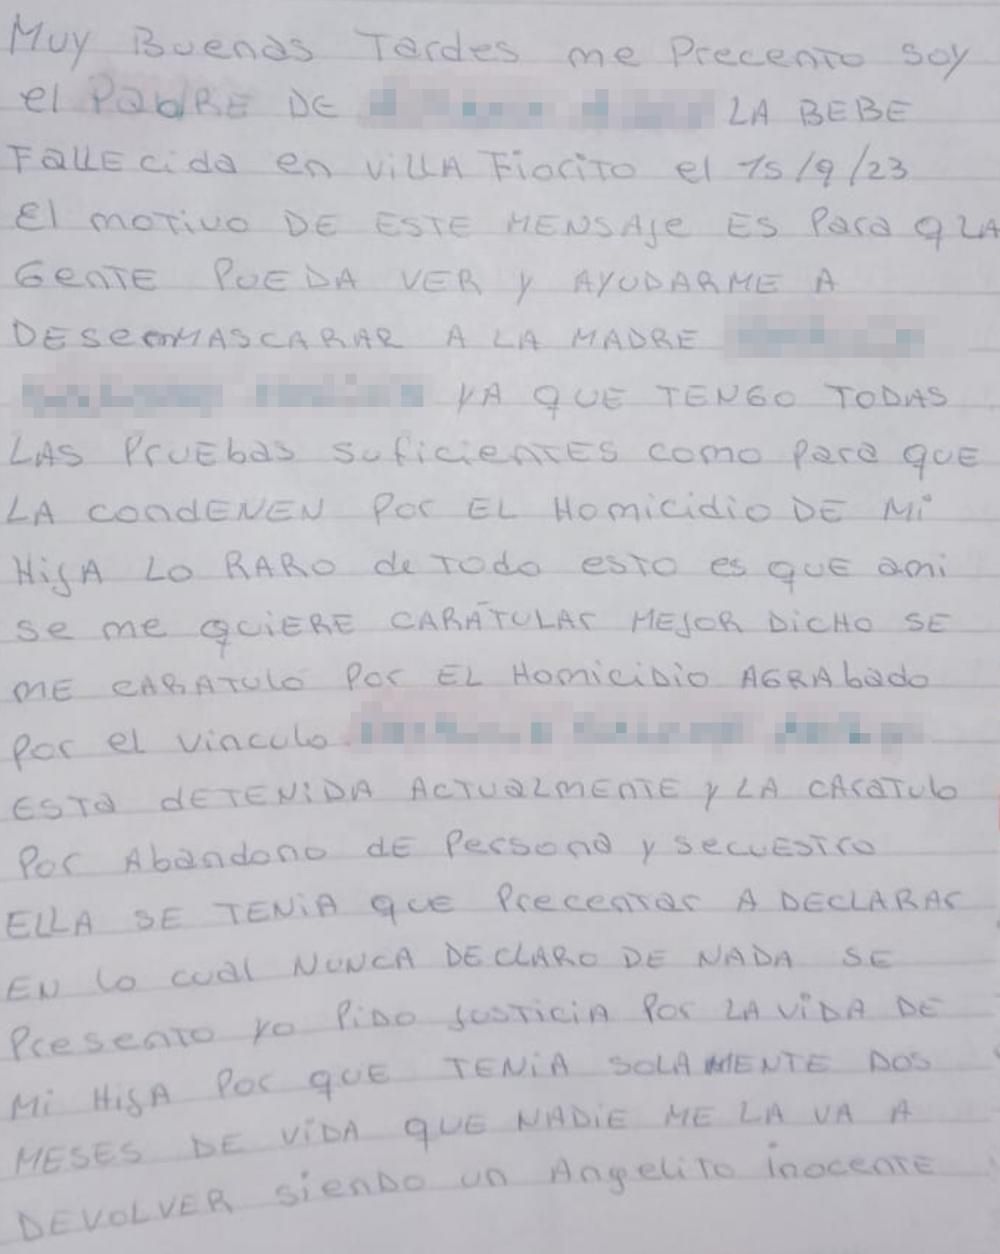 Muy Buenas Tardes me Precento soy
el PadRE DE LA BEBE
Fallecida en villA Fiorito el 15/9/23
el motivo DE ESTE MENSAJE ES Para q LA
GENTE PUEDA VER Y AYUDARME A
DESenMASCARAR A LA MADRE
YA QUE TENGO TODAS
LAS PruEbas suficienTES como para que
LA condENEN Por EL Homicidio DE Mi
HijA LO RARO de Todo esto es QUE ami
se me quiERE CARATULAr MEJOR DICHO SE
ME CARATULO Por EL Homicidio AGRAbado
por el vinculo
ESTa dETENIDA ACTUALmente y LA CAraTulo
Por Abandono dE Persona y SecuESTro
ELLA SE TENIA QUE Precentar A DECLARAr
EN lo cual NUNCA DECLARO DE NADA SE
Presento yo Pido JUSTICIA Por LA ViDA DE
Mi HijA Por QUE TENIA SOLAMENTE DOS
MESES DE ViDA QUE NADIE ME LA VA A
DEVOLVER siendo un Angelito inocente